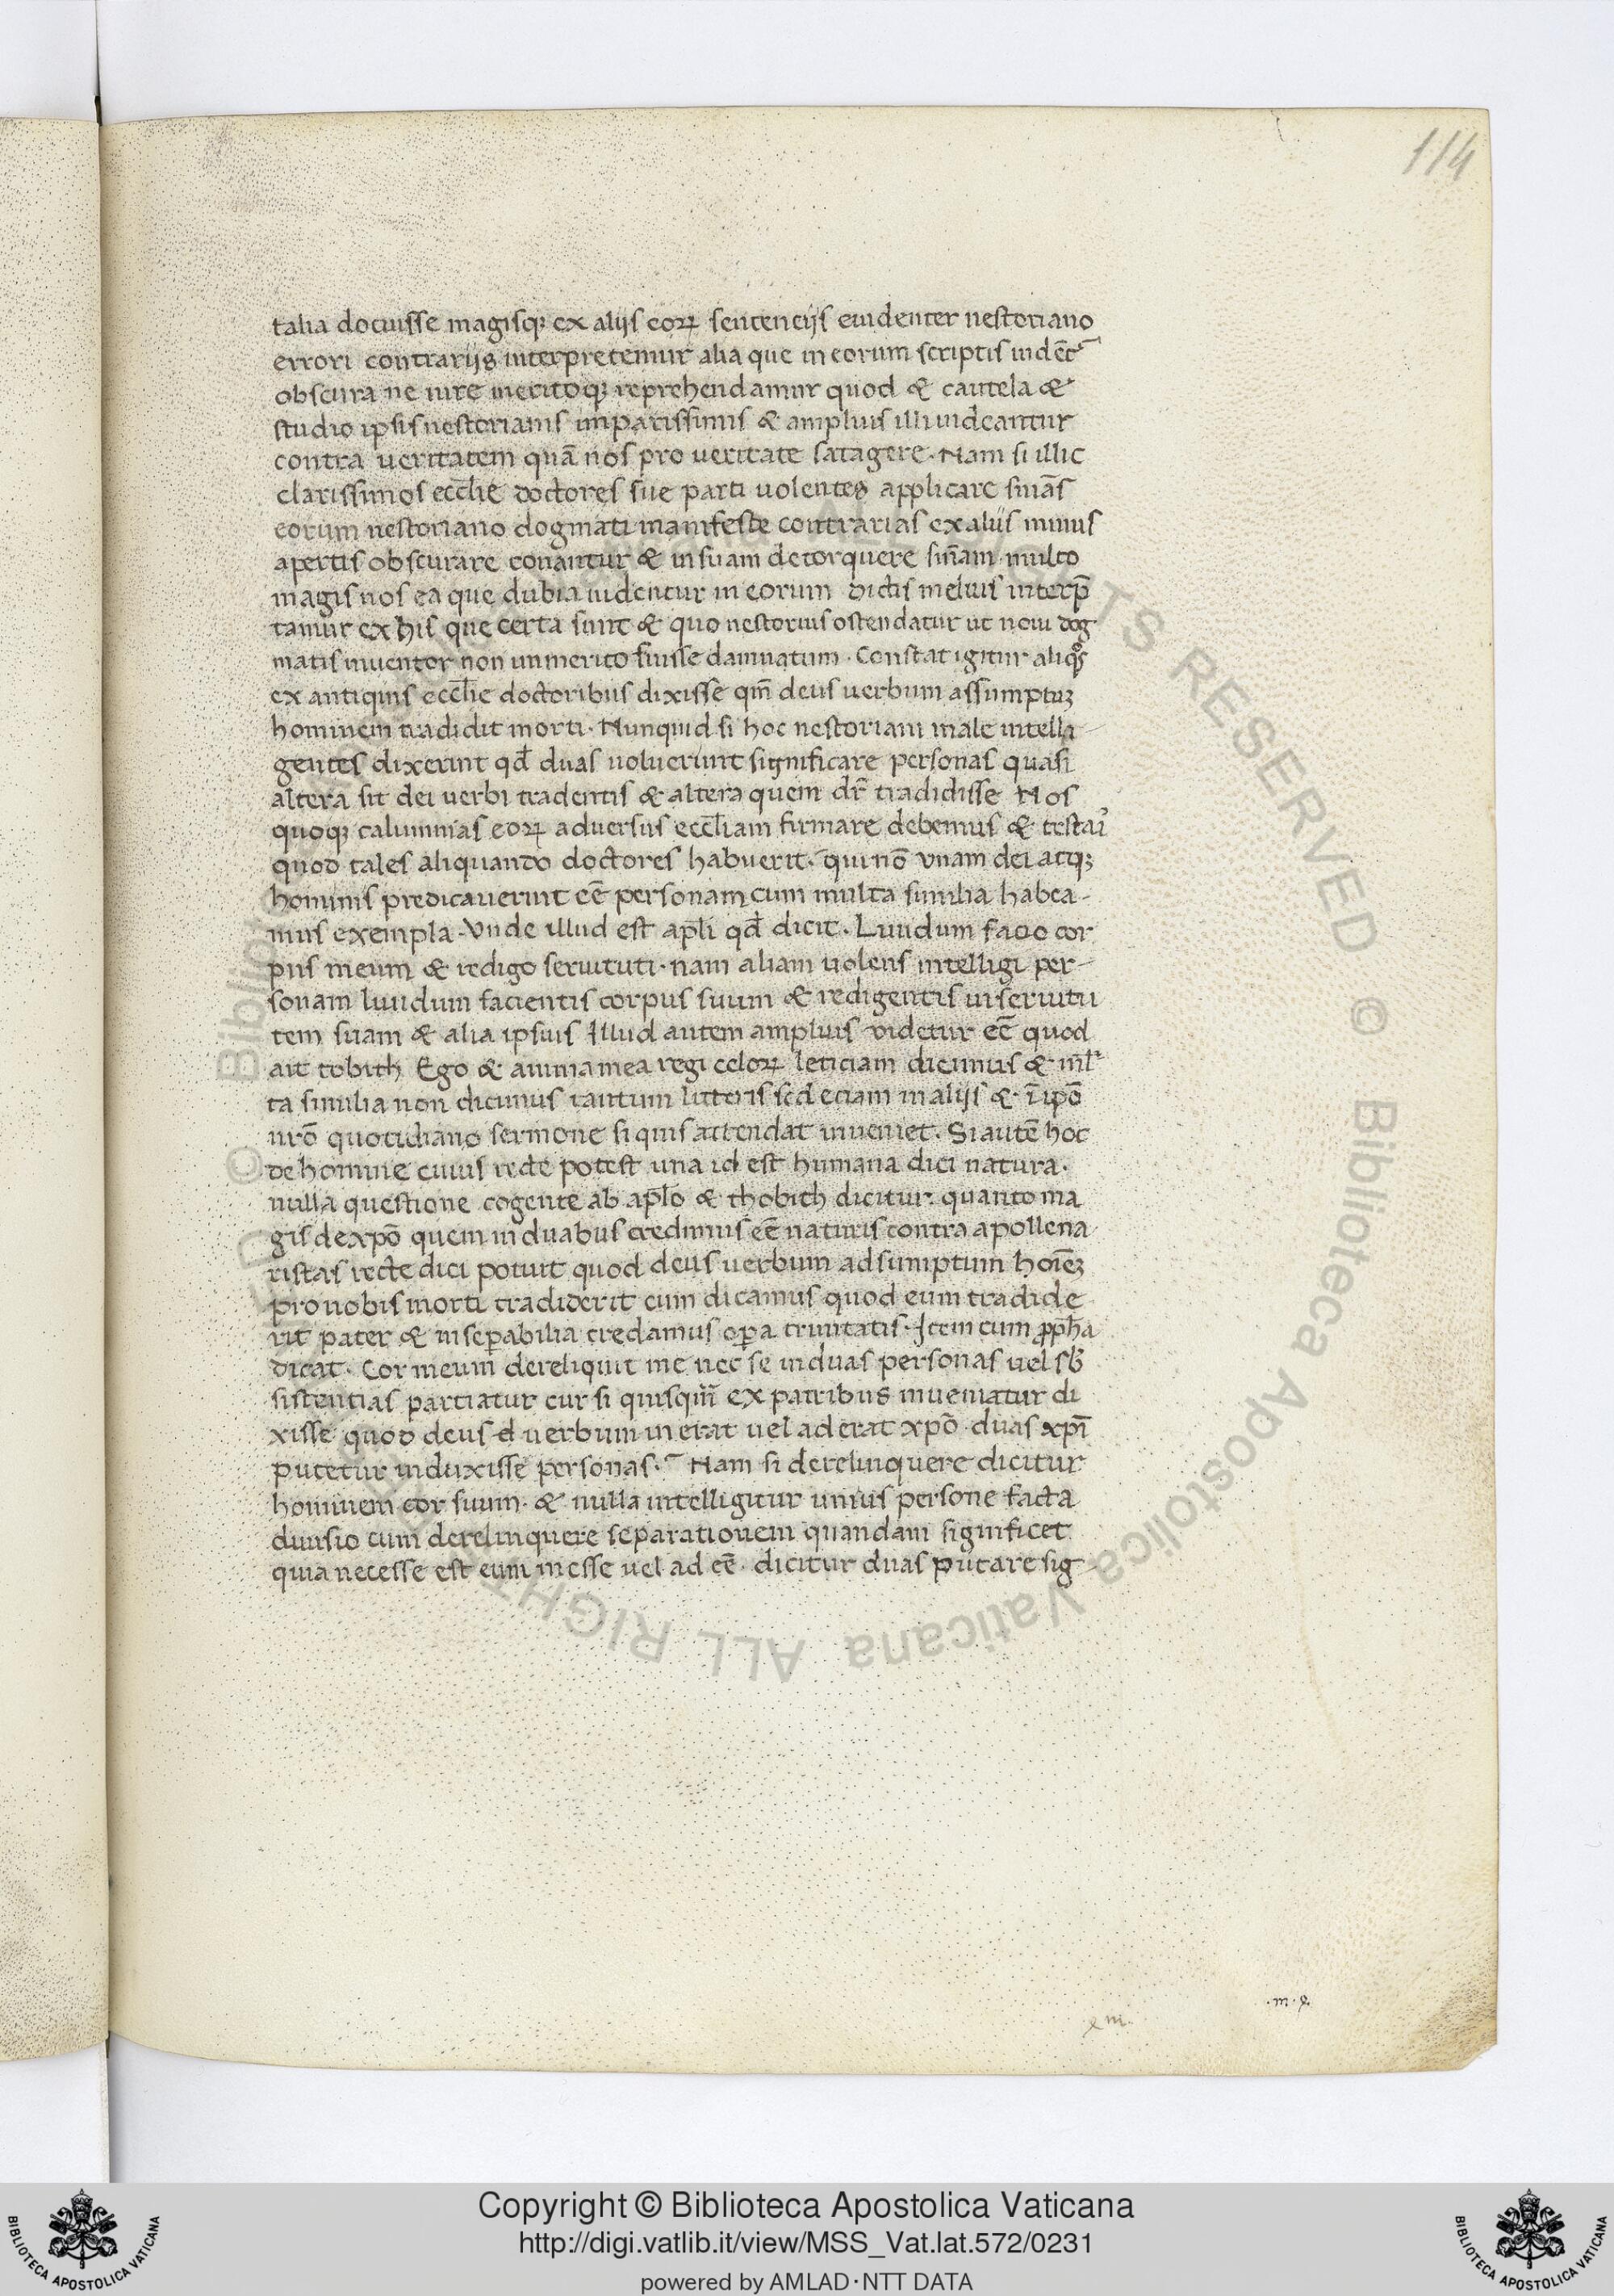 114
talia docuisse magisq; ex alijs eoꝝ sentencijs euidenter nestoriano
errori contrarijs interpretemur alia que in eorum scriptis uident᷑
obscura ne iure meritoq; reprehendamur quod & cautela &
studio ipsis nestorianis imparissimis & amplius illi uideantur
contra ueritatem quā nos pro ueritate satagere. Nam si illic
clarissimos eccl̄ie doctores sue parti uolentes applicare sn̄ias
eorum nestoriano dogmati manifeste contrarias ex aliis minus
apertis obscurare conantur & in suam detorquere sn̄iam. multo
magis nos ea que dubia uidentur in eorum dictis melius interp̄
tamur ex his que certa sunt & quo nestorius ostendatur ut noui dog
matis inuentor non inmerito fuisse damnatum. Constat igitur aliqͦs
ex antiquis eccl̄ie doctoribus dixisse qm̄ deus uerbum assumptuꝫ
hominem tradidit morti. Nunquid si hoc nestoriani male intelli-
gentes dixerint qd̄ duas uoluerunt significare personas quasi
altera sit dei uerbi tradentis & altera quem dr̄ tradidisse Nos
quoq; calumnias eoꝝ aduersus eccl̄iam firmare debemus & testari
quod tales aliquando doctores habuerit. qui nō vnam dei atq;
hominis predicauerint eē personam cum multa similia habea-
mus exempla. Vnde illud est apl̄i qd̄ dicit. Liuidum facio cor
pus meum & redigo seruituti. nam aliam uolens intelligi per-
sonam liuidum facientis corpus suum & redigentis in seruitu
tem suam & alia ipsius Illud autem amplius videtur eē quod
ait tobith Ego & anima mea regi celoꝝ leticiam dicimus & ml̄
ta similia non dicimus tantum litteris sed eciam in alijs & ī ipō
nrō quotidiano sermone si quis attendat inueniet. Si autē hoc
de homine cuius recte potest una id est humana dici natura.
nulla questione cogente ab apl̄o & thobith dicitur. quanto ma
gis de xp̄o quem in duabus credimus eē naturis contra apollena
ristas recte dici potuit quod deus uerbum adsumptum hoīeꝫ
pro nobis morti tradiderit cum dicamus quod eum tradide
rit pater & insep̄abilia credamus oꝑa trinitatis. Item cum ꝓph̄a
dicat. Cor meum dereliquit me nec se in duas personas uel sb̄
sistentias partiatur cur si quisqm̄ ex patribus inueniatur di
xisse quod deus d uerbum inerat uel aderat xp̄o. duas xp̄i
putetur induxisse personas. Nam si derelinquere dicitur
hominem cor suum. & nulla intelligitur unius persone facta
diuisio cum derelinquere separationem quandam significet
quia necesse est eum inesse uel ad eē. dicitur duas putare sig-
Copyright © Biblioteca Apostolica Vaticana
http://digi.vatlib.it/view/MSS_Vat.lat.572/0231
powered by AMLAD·NTT DATA
BIBLIOTECA APOSTOLICA VATICANA
BIBLIOTECA APOSTOLICA VATICANA